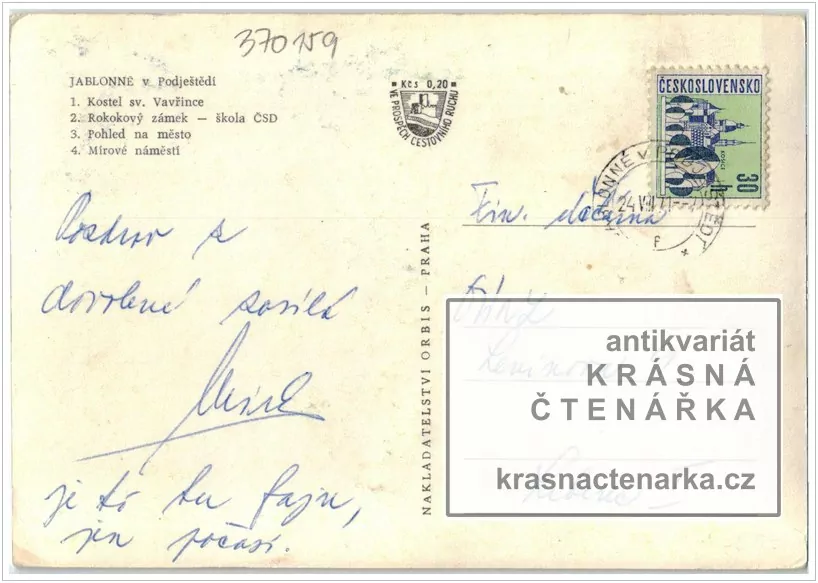 370159
JABLONNÉ v Podještědí
1. Kostel sv. Vavřince
2. Rokokový zámek — škola ČSD
3. Pohled na město
4. Mírové náměstí
Kčs 0,20
VE PROSPĚCH CESTOVNÍHO RUCHU
ČESKOSLOVENSKO
30 h
JABLONNÉ V PODJEŠTĚDÍ
24.VIII.71
Pozdrav z
dovolené posílá
je tó tu fajn,
jen počasí.
NAKLADATELSTVÍ ORBIS — PRAHA
Fin.
antikvariát
KRÁSNÁ
ČTENÁŘKA
krasnactenarka.cz